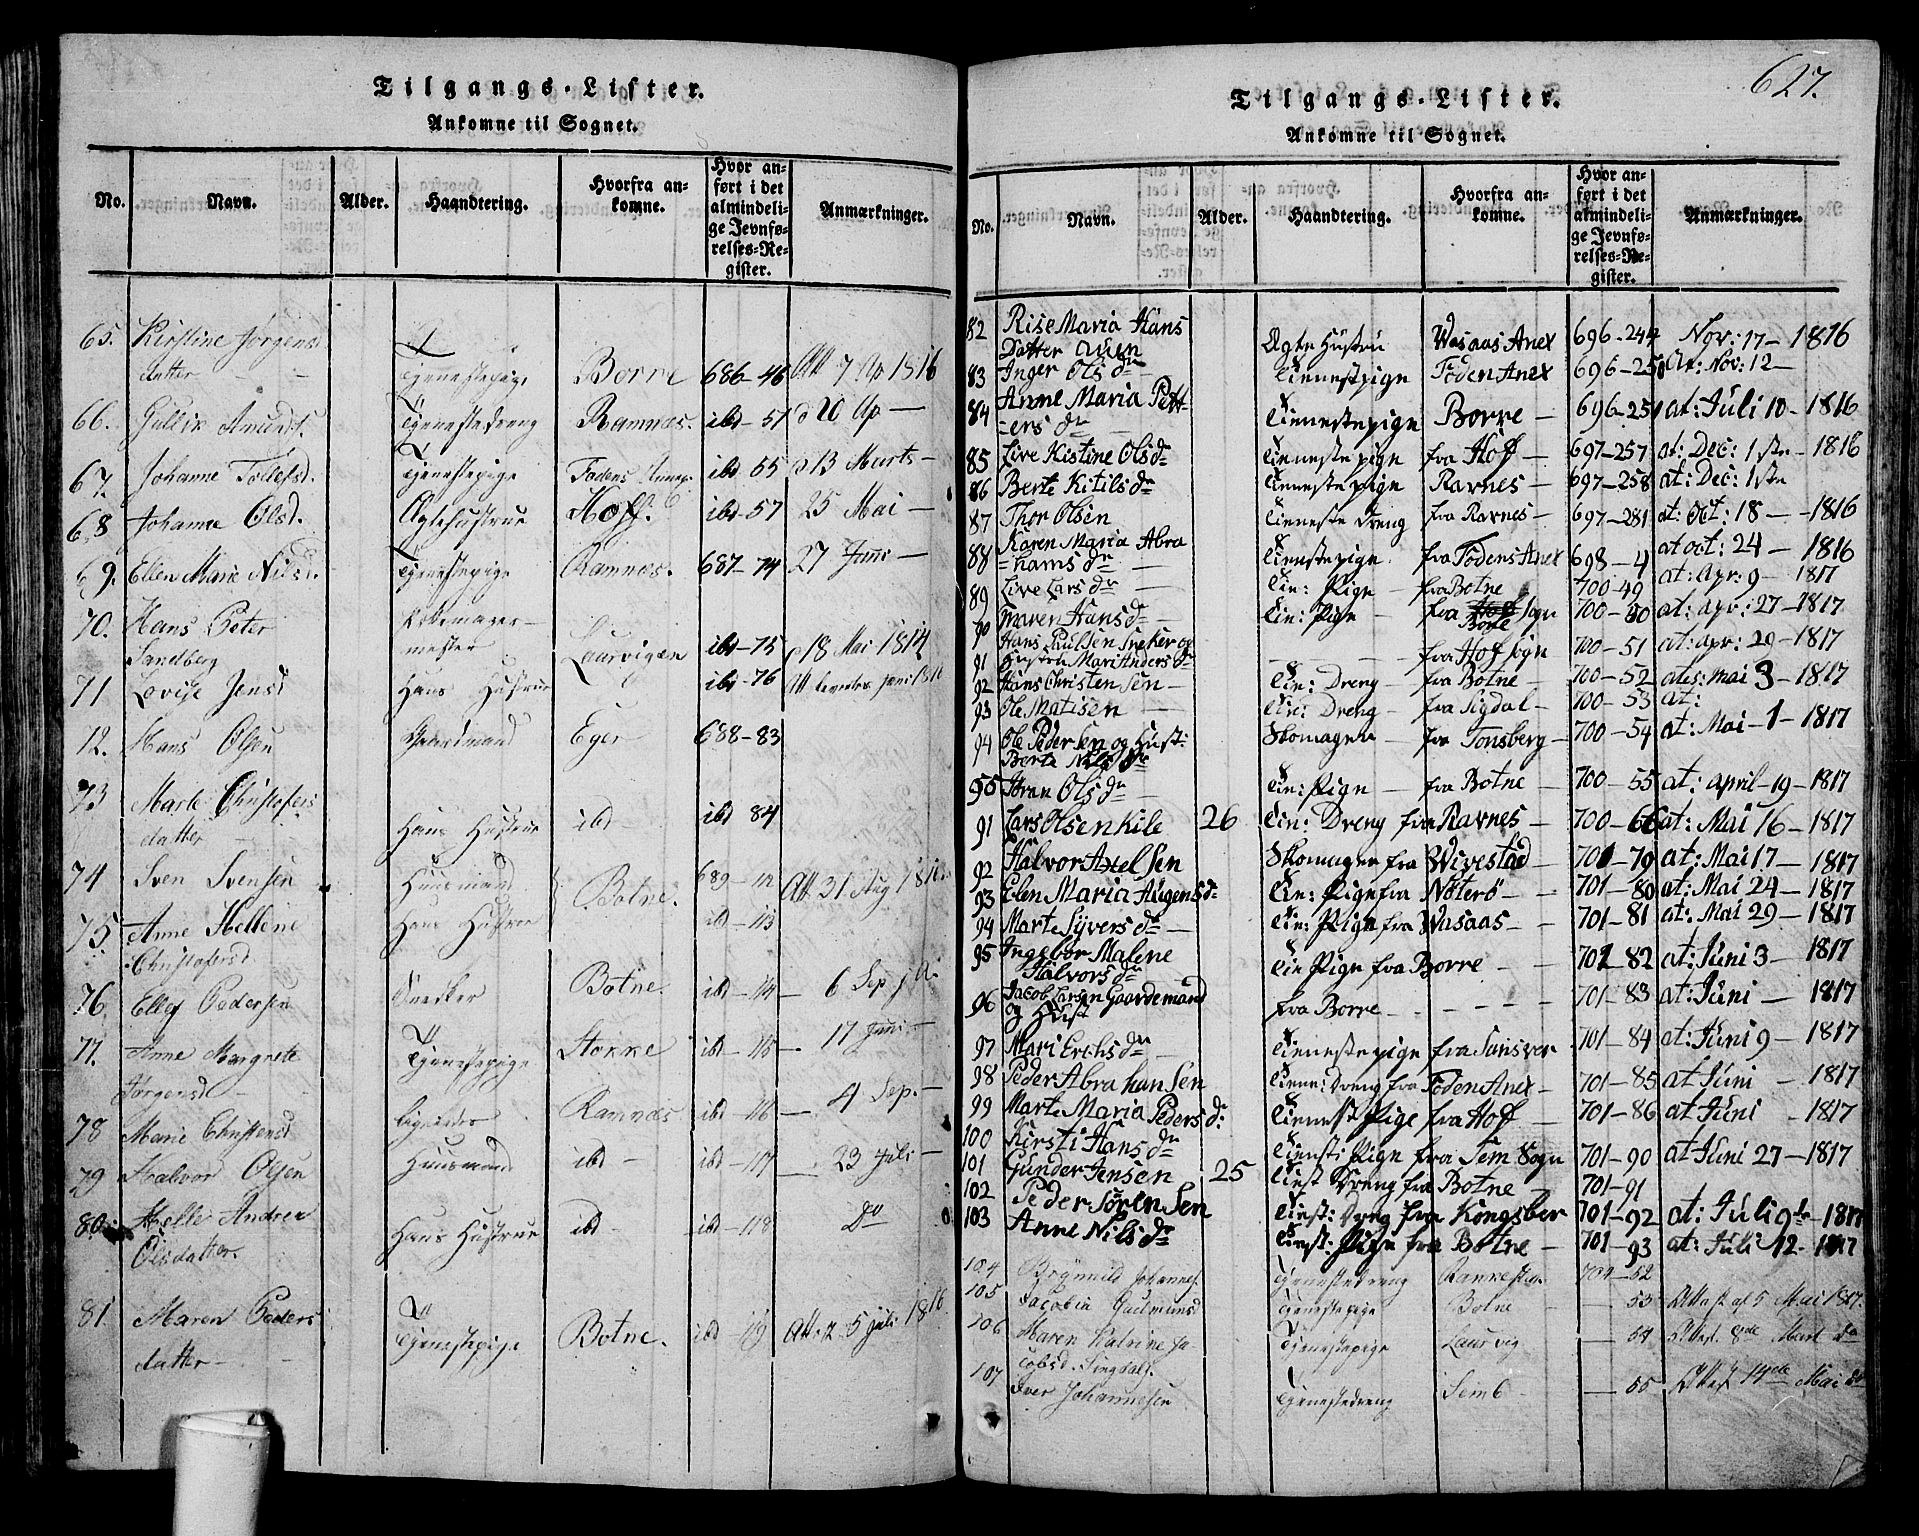 Tilgangs-Lister.
Ankomne til Sognet.
No. Navn. Alder. Haandtering. Hvorfra an-
komne. Hvor an-
ført i det
almindeli-
ge Jevnfø-
relses-Re-
gister. Anmærkninger.
65. Kirstine Jørgens
datter Tjenestepige Borre 686-46 Att 7 Ap 1816
66. Gullik Amunds. Tjenestedreng Ramnæs. ibd-51 d 20 Ap
67. Johanne Tollefsd. Tjenestepige Fodens Annex ibd-55 d 13 Marts
68 Johanne Olsd. Ægtehustrue Hoff. ibd-57 25 Mai
69. Ellen Marie Nilsd. Tjenestepige Ramnæs. 687-74 27 Juni
70. Hans Peter
Sandberg mester Laurvigen ibd-75 d 18 Mai 1814
71 Lovise Jensd Hans Hustrue ibd-76 Att
72. Hans Olsen Gaardmand Eger 688-83
73 Marte Christofers
datter Hans Hustrue ibd ibd 84
74 Sven Svensen Huusmand Botne. 689-112 Att 31 Aug 1816
75 Anne Hellene
Christofersd. Hans Hustrue ibd-113
76 Ellef Pedersen Snedker Botne. ibd-114 6 Sep
77. Anne Margrete
Jørgensd Tjenestepige Stokke ibd-115 17 Juni
78 Marie Christensd ligeledes Ramnæs ibd-116 4 Sep.
79 Halvor Olsen Huusmand ibd ibd-117 23 Juli
80. Helle Andrea
Olsdatter. Hans Hustrue ibd ibd-118 Do
81. Maren Peders
datter Tjenestepige Botne. ibd 119 Att. 5 Juli 1816
627.
Tilgangs-Lister.
Ankomne til Sognet.
No. Navn. Alder. Haandtering. Hvorfra an-
komne. Hvor an-
ført i det
almindeli-
ge Jevnfø-
relses-Re-
gister. Anmærkninger.
82 Rise Maria Hans
Datter Auen Ægte Hustru Wasaas Anex 696-244 Nov: 17-1816
83 Inger Olsdr Tienestpige Foden Anex 696-250 At: Nov: 12
84 Anne Maria Pett
=ers dr Tienestepige Borre 696-251 at: Juli 10-1816
85 Live Kistine Olsdr Tieneste pige fra Hoff 697-257 at: Dec: 1ste 1816
86 Berte Kitilsdr Tieneste pige Ravnes 697-258 at: Dec: 1ste
87 Thor Olsen Tieneste Dreng fra Ravnes 697-281 at: Oct: 18 1816
88 Karen Maria Abra
=hams dr Tienestepige fra Fodens Anex 698-4 at oct: 24 1816
89 Live Larsdr Tien: Pige fra Botne 700-49 at: Apr: 9 1817
90 Maren Hansdr Tien: Pige fra Borre sogn 700-50 at: apr: 27-1817
91 Hans Paulsen Sneker og
Hustru Mari Andersdr fra Hof sogn 700-51 at: apr: 29-1817
92 Hans Christensen Tien: Dreng fra Botne 700-52 ates: mai 3-1817
93 Ole Matisen Tien: Dreng fra Sigdal 700-53 at:
94 Ole Pedersen og Hust:
Berte Nilsdr Skomager fra Tonsberg 700-54 at: Mai-1-1817
95 Olsdr Tien: Pige fra Botne 700-55 at: april 19-1817
91 Lars Olsen Kile 26 Tien: Dreng fra Ravnes 700-66 at: Mai 16-1817
92 Halvor Axelsen Skomager fra Wivestad 701-79 at: Mai 17-1817
93 Elen Maria Augensdr Tien: Pige fra Nøterø 701-80 at: Mai 24-1817
94 Marte Syversdr Tien: Pige fra Wasaas 701-81 at: Mai 29-1817
95 Ingebor Malene
Halvorsdr Tien Pige fra Borre 701-82 at: Juni 3-1817
96 Jacob Larsen Gaardemand
og Hust fra Borre 701-83 at: Juni 1817
97 Mari Erchsdr Tieneste pige fra Sansver 701-84 at: Juni 9-1817
98 Peder Abrahansen Tiene: Dreng fra Foden Anex 701-85 at Juni 1817
99 Marte Maria Pedersdr Tienest Pige fra Hoff 701-86 at Juni 1817
100 Kirsti Hansdr Tienest: Pige fra Sem Sogn 701-90 at Juni 27-1817
101 Gunder Jensen 25 Tiest Dreng fra Botne 701-91
102 Peder Sørensen Tiest: Dreng fra Kongsber 701-92 at: Juli 9de 1817
103 Anne Nilsdr Tienst: Pige fra Botne 701-93 at: Juli 12-1817
104 Brynnild Johannes. Tjenestedreng 701-52
105 Jacobin Gulmunds Tjenestepige Botne 53 Attest af 5 Mai 1817.
106 Maren Katrine Ja
cobsd. Tjenestepige Laurvig 54 Attest. 8de Mart do
107 Iver Johannesen Tjenestedreng Semb 55 Attest 14de Mai do